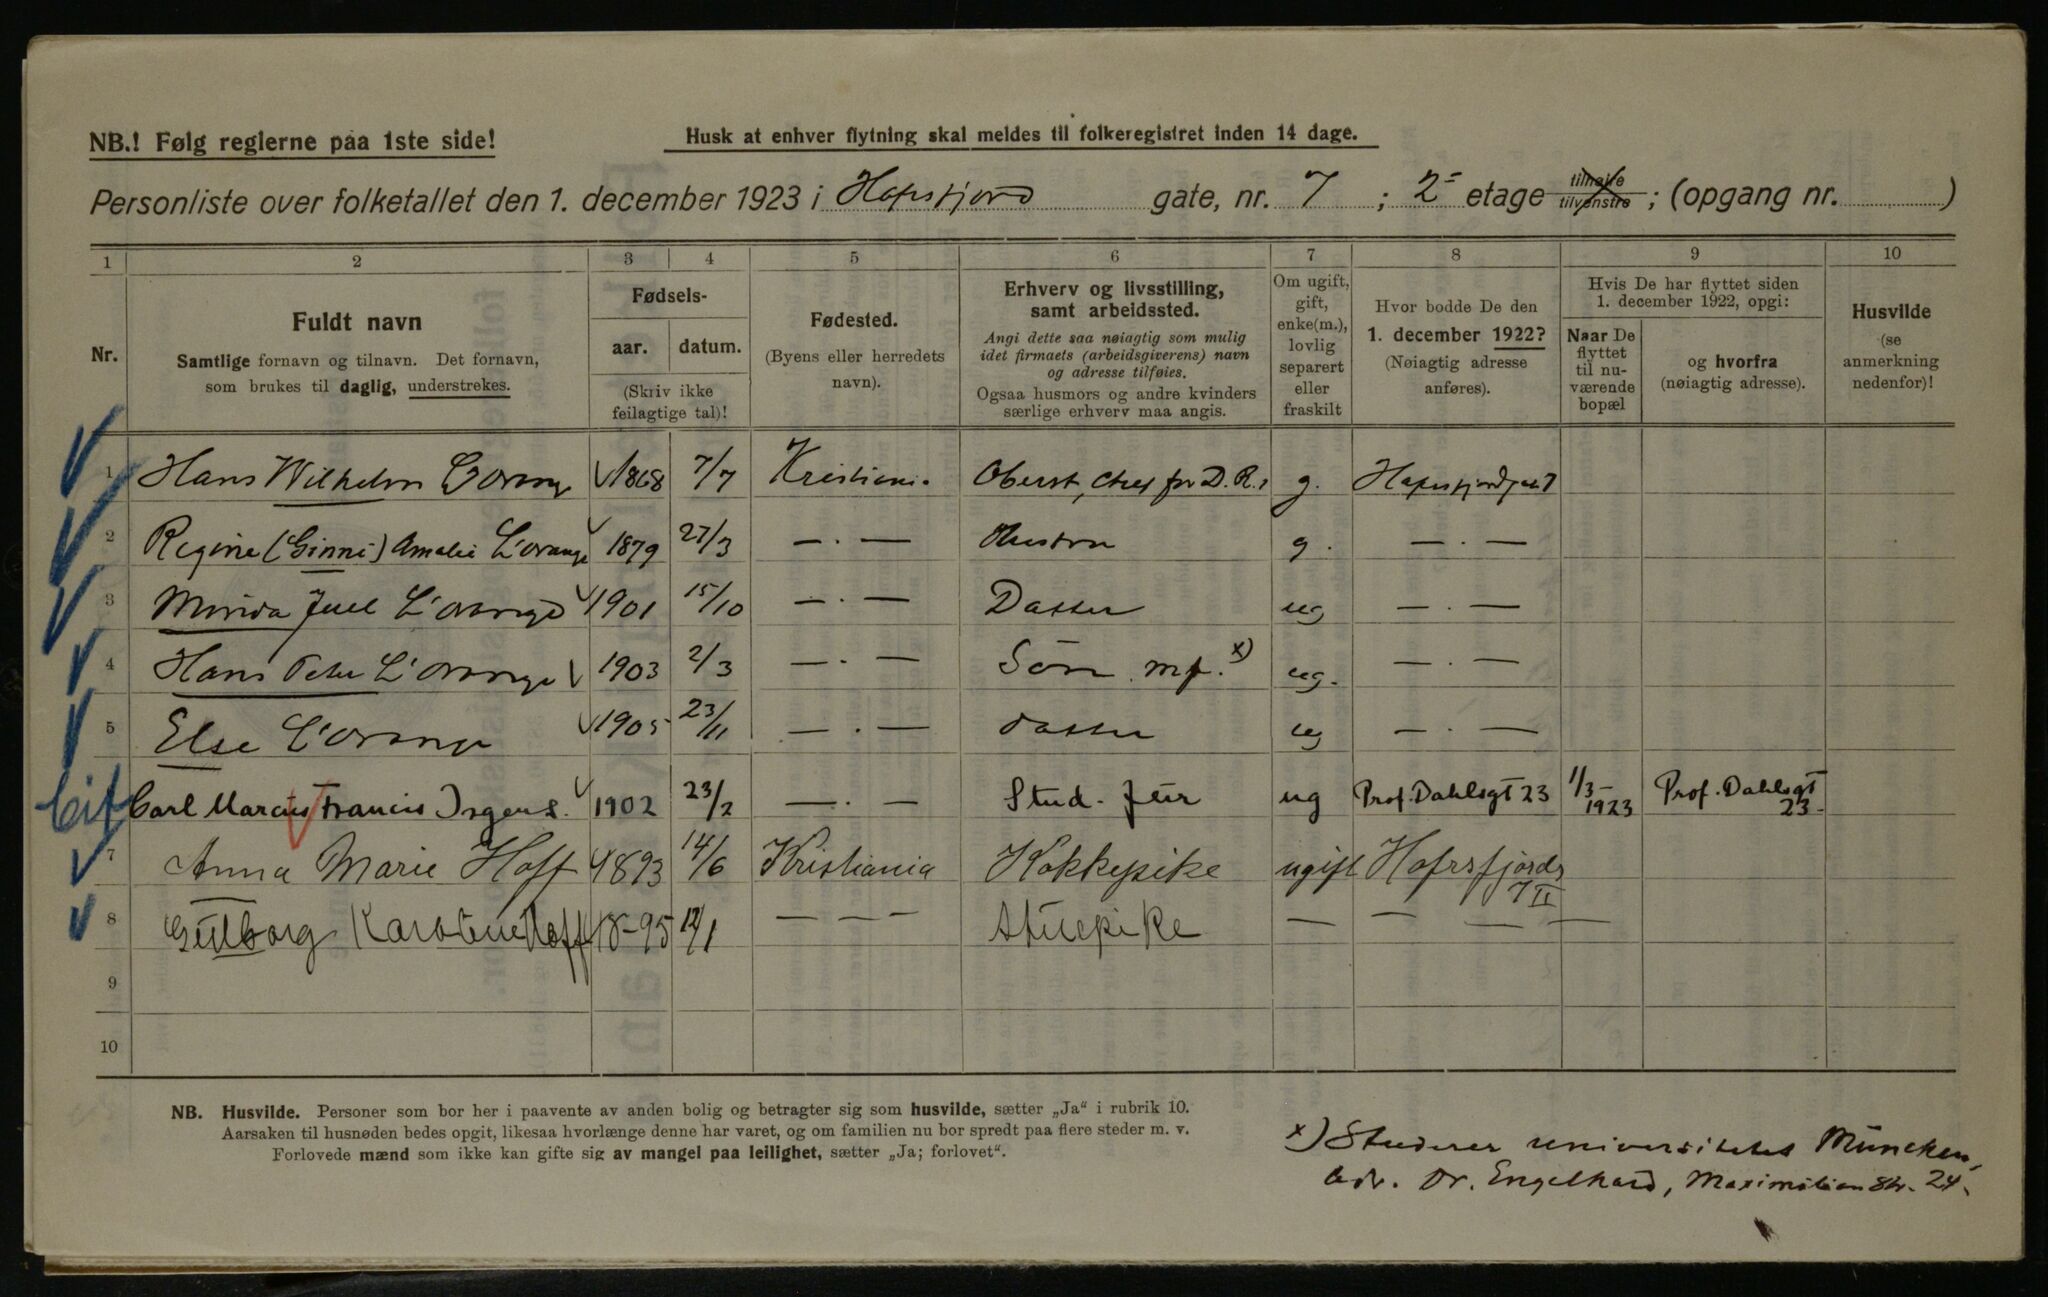 NB.! Følg reglerne paa 1ste side!
Husk at enhver flytning skal meldes til folkeregistret inden 14 dage.
Personliste over folketallet den 1. december 1923 i Hafrsfjord gate, nr. 7 ; 2 etage tilhøire tilvenstre ; (opgang nr. )
1 2 3 4 5 6 7 8 9 10
Nr.
Fuldt navn
Samtlige fornavn og tilnavn. Det fornavn,
som brukes til daglig, understrekes.
Fødsels-
aar. datum.
(Skriv ikke
feilagtige tal)!
Fødested.
(Byens eller herredets
navn).
Erhverv og livsstilling,
samt arbeidssted.
Angi dette saa nøiagtig som mulig
idet firmaets (arbeidsgiverens) navn
og adresse tilføies.
Ogsaa husmors og andre kvinders
særlige erhverv maa angis.
Om ugift,
gift,
enke(m.),
lovlig
separert
eller
fraskilt
Hvor bodde De den
1. december 1922?
(Nøiagtig adresse
anføres).
Hvis De har flyttet siden
1. december 1922, opgi:
Naar De
flyttet
til nu-
værende
bopæl
og hvorfra
(nøiagtig adresse).
Husvilde
(se
anmerkning
nedenfor)!
1 Hans Wilhelm L'orange 1868 7/7 Kristiania Oberst, chef for D.R. g. Hafrsfjordgt 7
2 Regine (Ginni) Amalie L'orange 1879 27/3 — . — Hustru g. — . —
3 Juel L'orange 1901 15/10 — . — Datter ug — . —
4 Hans Peter L'orange 1903 2/3 — . — Sön mf. x) ug. — . —
5 Else L'orange 1905 23/11 — . — datter ug — . —
Carl Marcus Francis Irgens. 1902 23/2 — . — Stud. jur ug Prof. Dahlsgt 23 1/3-1923 Prof. Dahlsgt 23-
7 Anna Marie Hoff 1893 14/6 Kristiania Kokkepike ugift Hafrsfjords 7 II
8 Gulborg Karoline Hoff 18-95 12/1 — — — Stuepike — — — —
9
10
NB. Husvilde. Personer som bor her i paavente av anden bolig og betragter sig som husvilde, sætter „Ja“ i rubrik 10.
Aarsaken til husnøden bedes opgit, likesaa hvorlænge denne har varet, og om familien nu bor spredt paa flere steder m. v.
Forlovede mænd som ikke kan gifte sig av mangel paa leilighet, sætter „Ja; forlovet“.
x) Studerer universitetet München,
adr. Dr. Engelhard, Maximilian Str. 24.